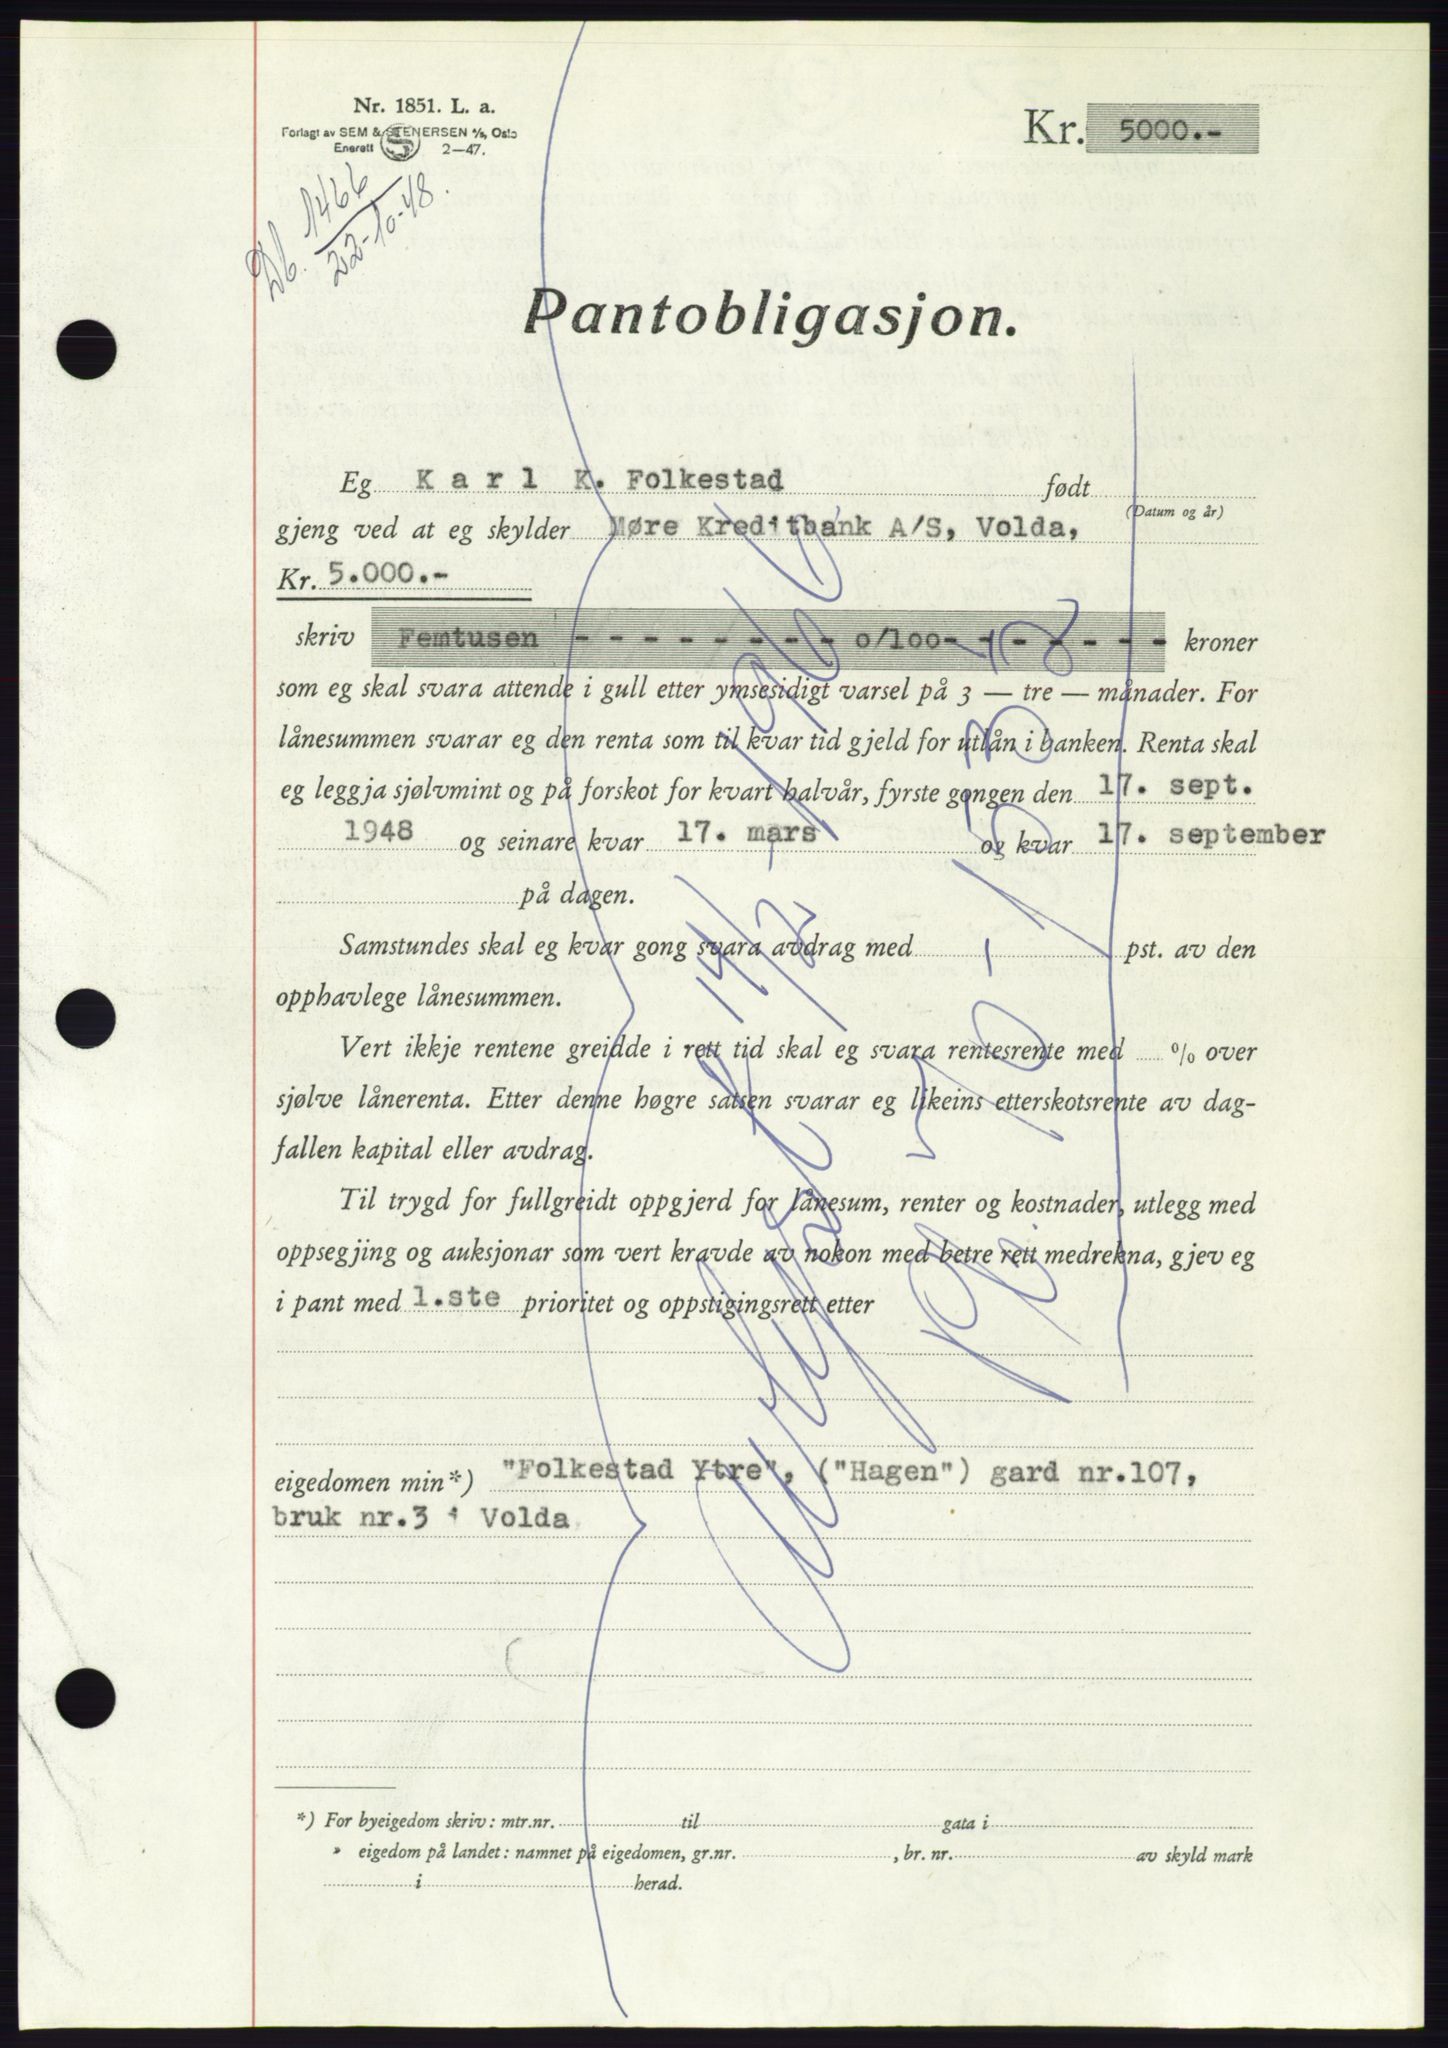 Nr. 1851. L. a.
Forlagt av SEM & STENERSEN A/S, Oslo
Enerett 2—47.
Kr. 5000.-
Db. 1466
22-10-48.
Pantobligasjon.
Eg Karl K. Folkestad født
(Datum og år)
gjeng ved at eg skylder Møre Kreditbank A/S, Volda,
Kr. 5.000.-
skriv Femtusen - - - - - - - - o/100- - - - - - - kroner
som eg skal svara attende i gull etter ymsesidigt varsel på 3 — tre — månader. For
lånesummen svarar eg den renta som til kvar tid gjeld for utlån i banken. Renta skal
eg leggja sjølvmint og på forskot for kvart halvår, fyrste gongen den 17. sept.
1948 og seinare kvar 17. mars og kvar 17. september
på dagen.
Samstundes skal eg kvar gong svara avdrag med pst. av den
opphavlege lånesummen.
Vert ikkje rentene greidde i rett tid skal eg svara rentesrente med % over
sjølve lånerenta. Etter denne høgre satsen svarar eg likeins etterskotsrente av dag-
fallen kapital eller avdrag.
Til trygd for fullgreidt oppgjerd for lånesum, renter og kostnader, utlegg med
oppsegjing og auksjonar som vert kravde av nokon med betre rett medrekna, gjev eg
i pant med 1.ste prioritet og oppstigingsrett etter
eigedomen min*) "Folkestad Ytre", ("Hagen") gard nr.107,
bruk nr.3 i Volda
*) For byeigedom skriv: mtr.nr. til gata i
» eigedom på landet: namnet på eigedomen, gr.nr. , br. nr. av skyld mark
i herad.